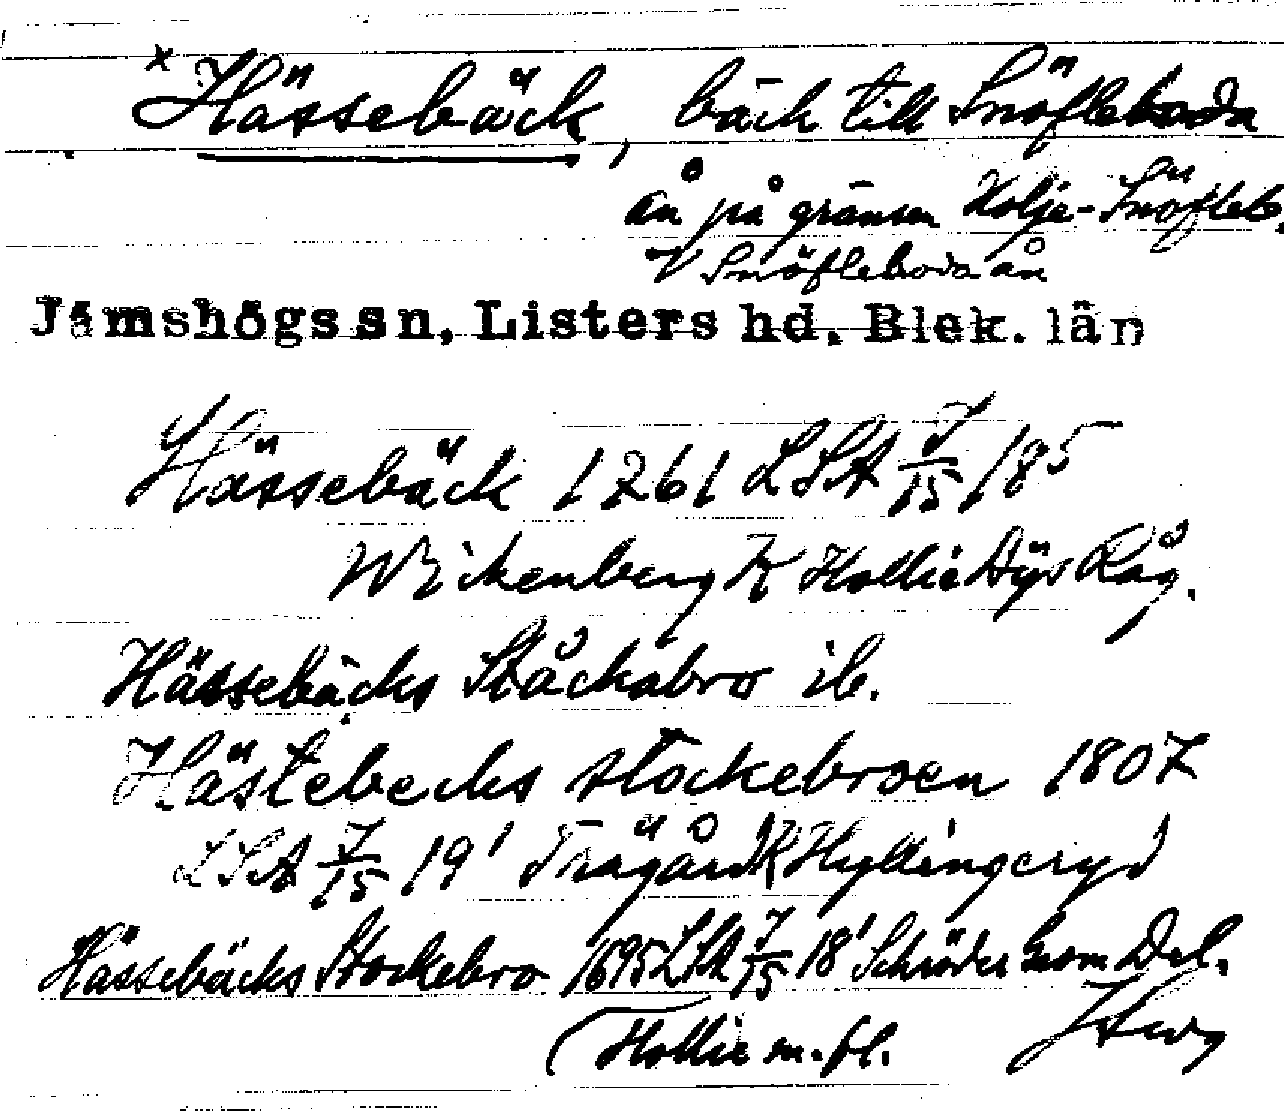 x Hässebäck, bäck till Snöfleboda
ån på gränsen Holje-Snöfleb.
V Snöfleboda ån
Jämshögs sn, Listers hd. Blek. län
Hässebäck 1761 LSA 7/15 18⁵
Wickenberg K Hollie Dys Råg.
Hässebäcks Ståckabro ib.
Hästebecks stockebroen 1807
LSA 7/15 19¹ Trägård K Hyllingeryd
Hässebäcks Stockebro 1695 LSA 7/15 18¹ Schröder Geom Del.
(Hollie m. fl.